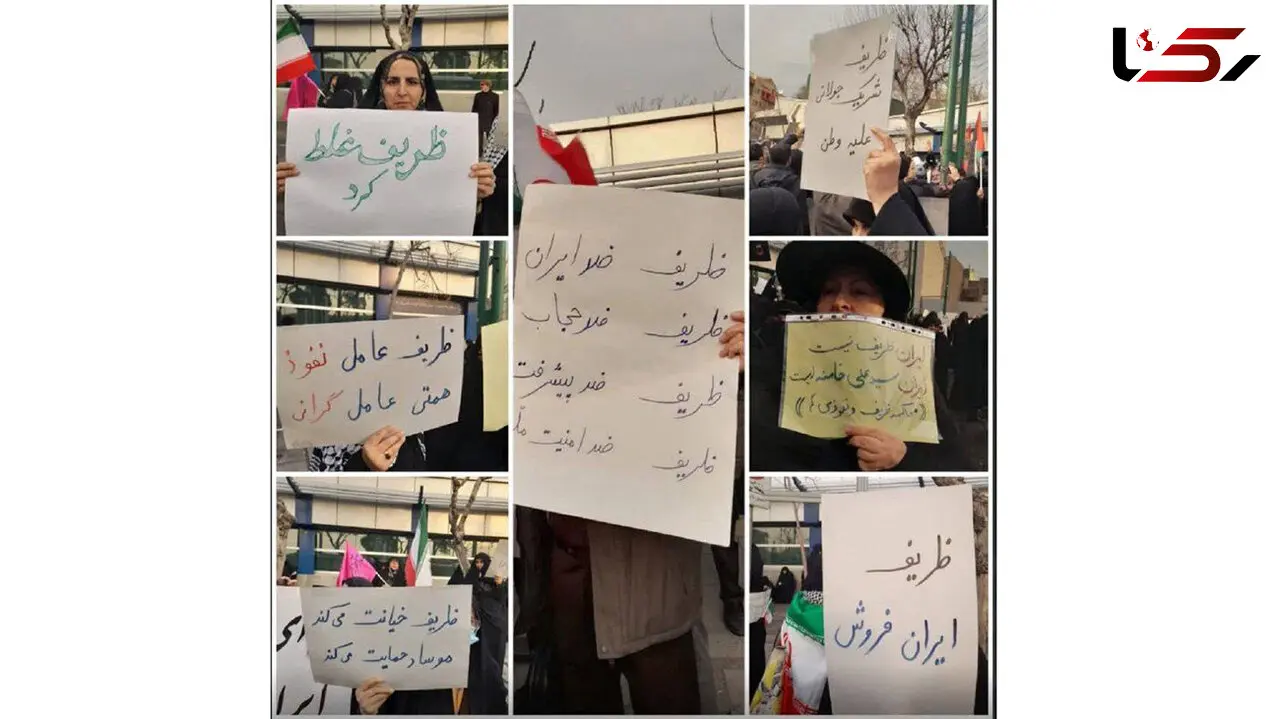 رکنا
ظریف
شریک جولانی
علیه وطن
ظریف غلط
کرد
ظریف ضد ایران
ظریف ضد حجاب
ظریف ضد پیشرفت
ظریف ضد امنیت
ایران ظریف نیست
ایران سید علی خامنه ایست
ظریف و نفوذی
ظریف عامل نفوذ
همتی عامل گرانی
ظریف
ایران فروش
ظریف خیانت می‌کند
موساد حمایت می‌کند